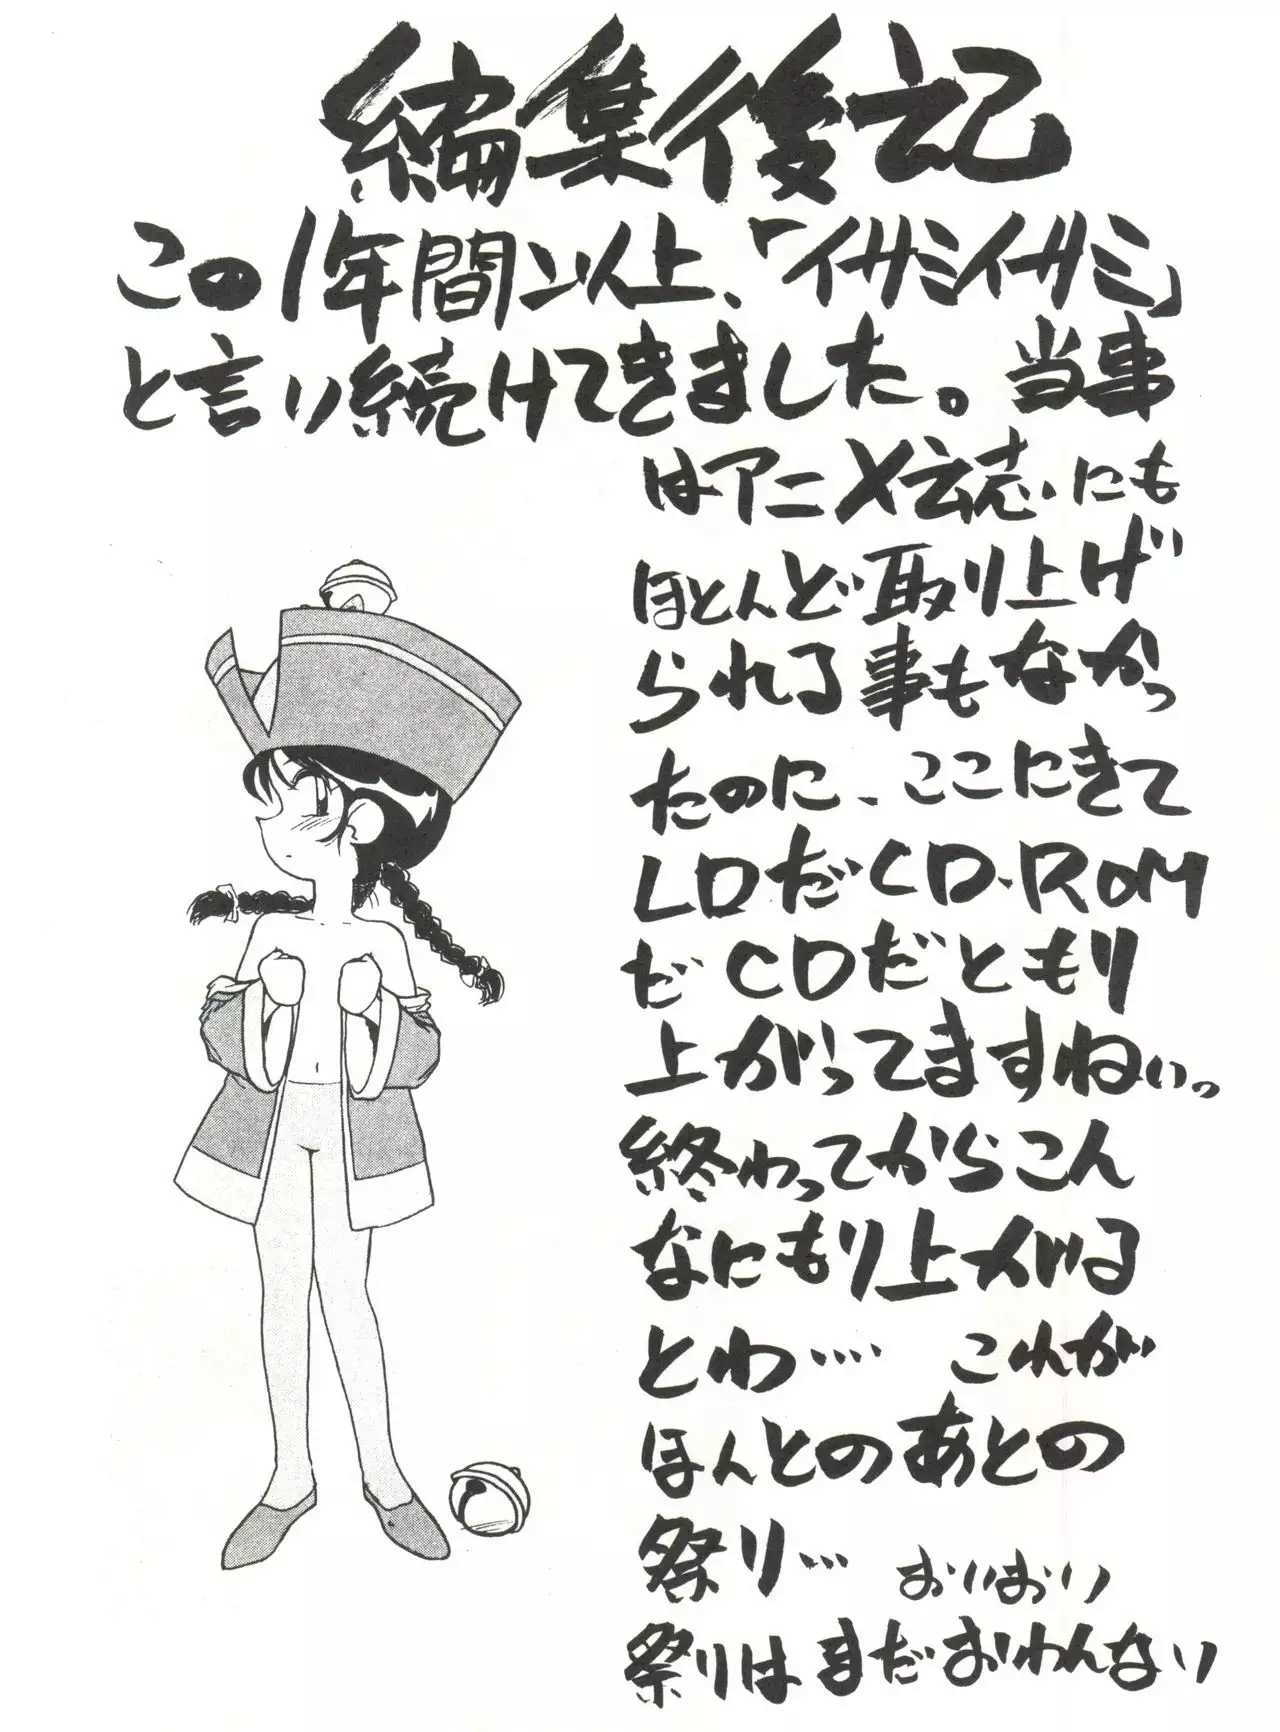 編集後記
この1年間以上、「イサミイサミ」
と言い続けてきました。当事
はアニメ雑志にも
ほとんど取り上げ
られる事もなかっ
たのに、ここにきて
LDだCD-ROM
だCDだともり
上がってますねぃっ。
終わってからこん
なにもり上がる
とわ‥‥ これが
ほんとのあとの
祭り… おいおい
祭りはまだおわんない